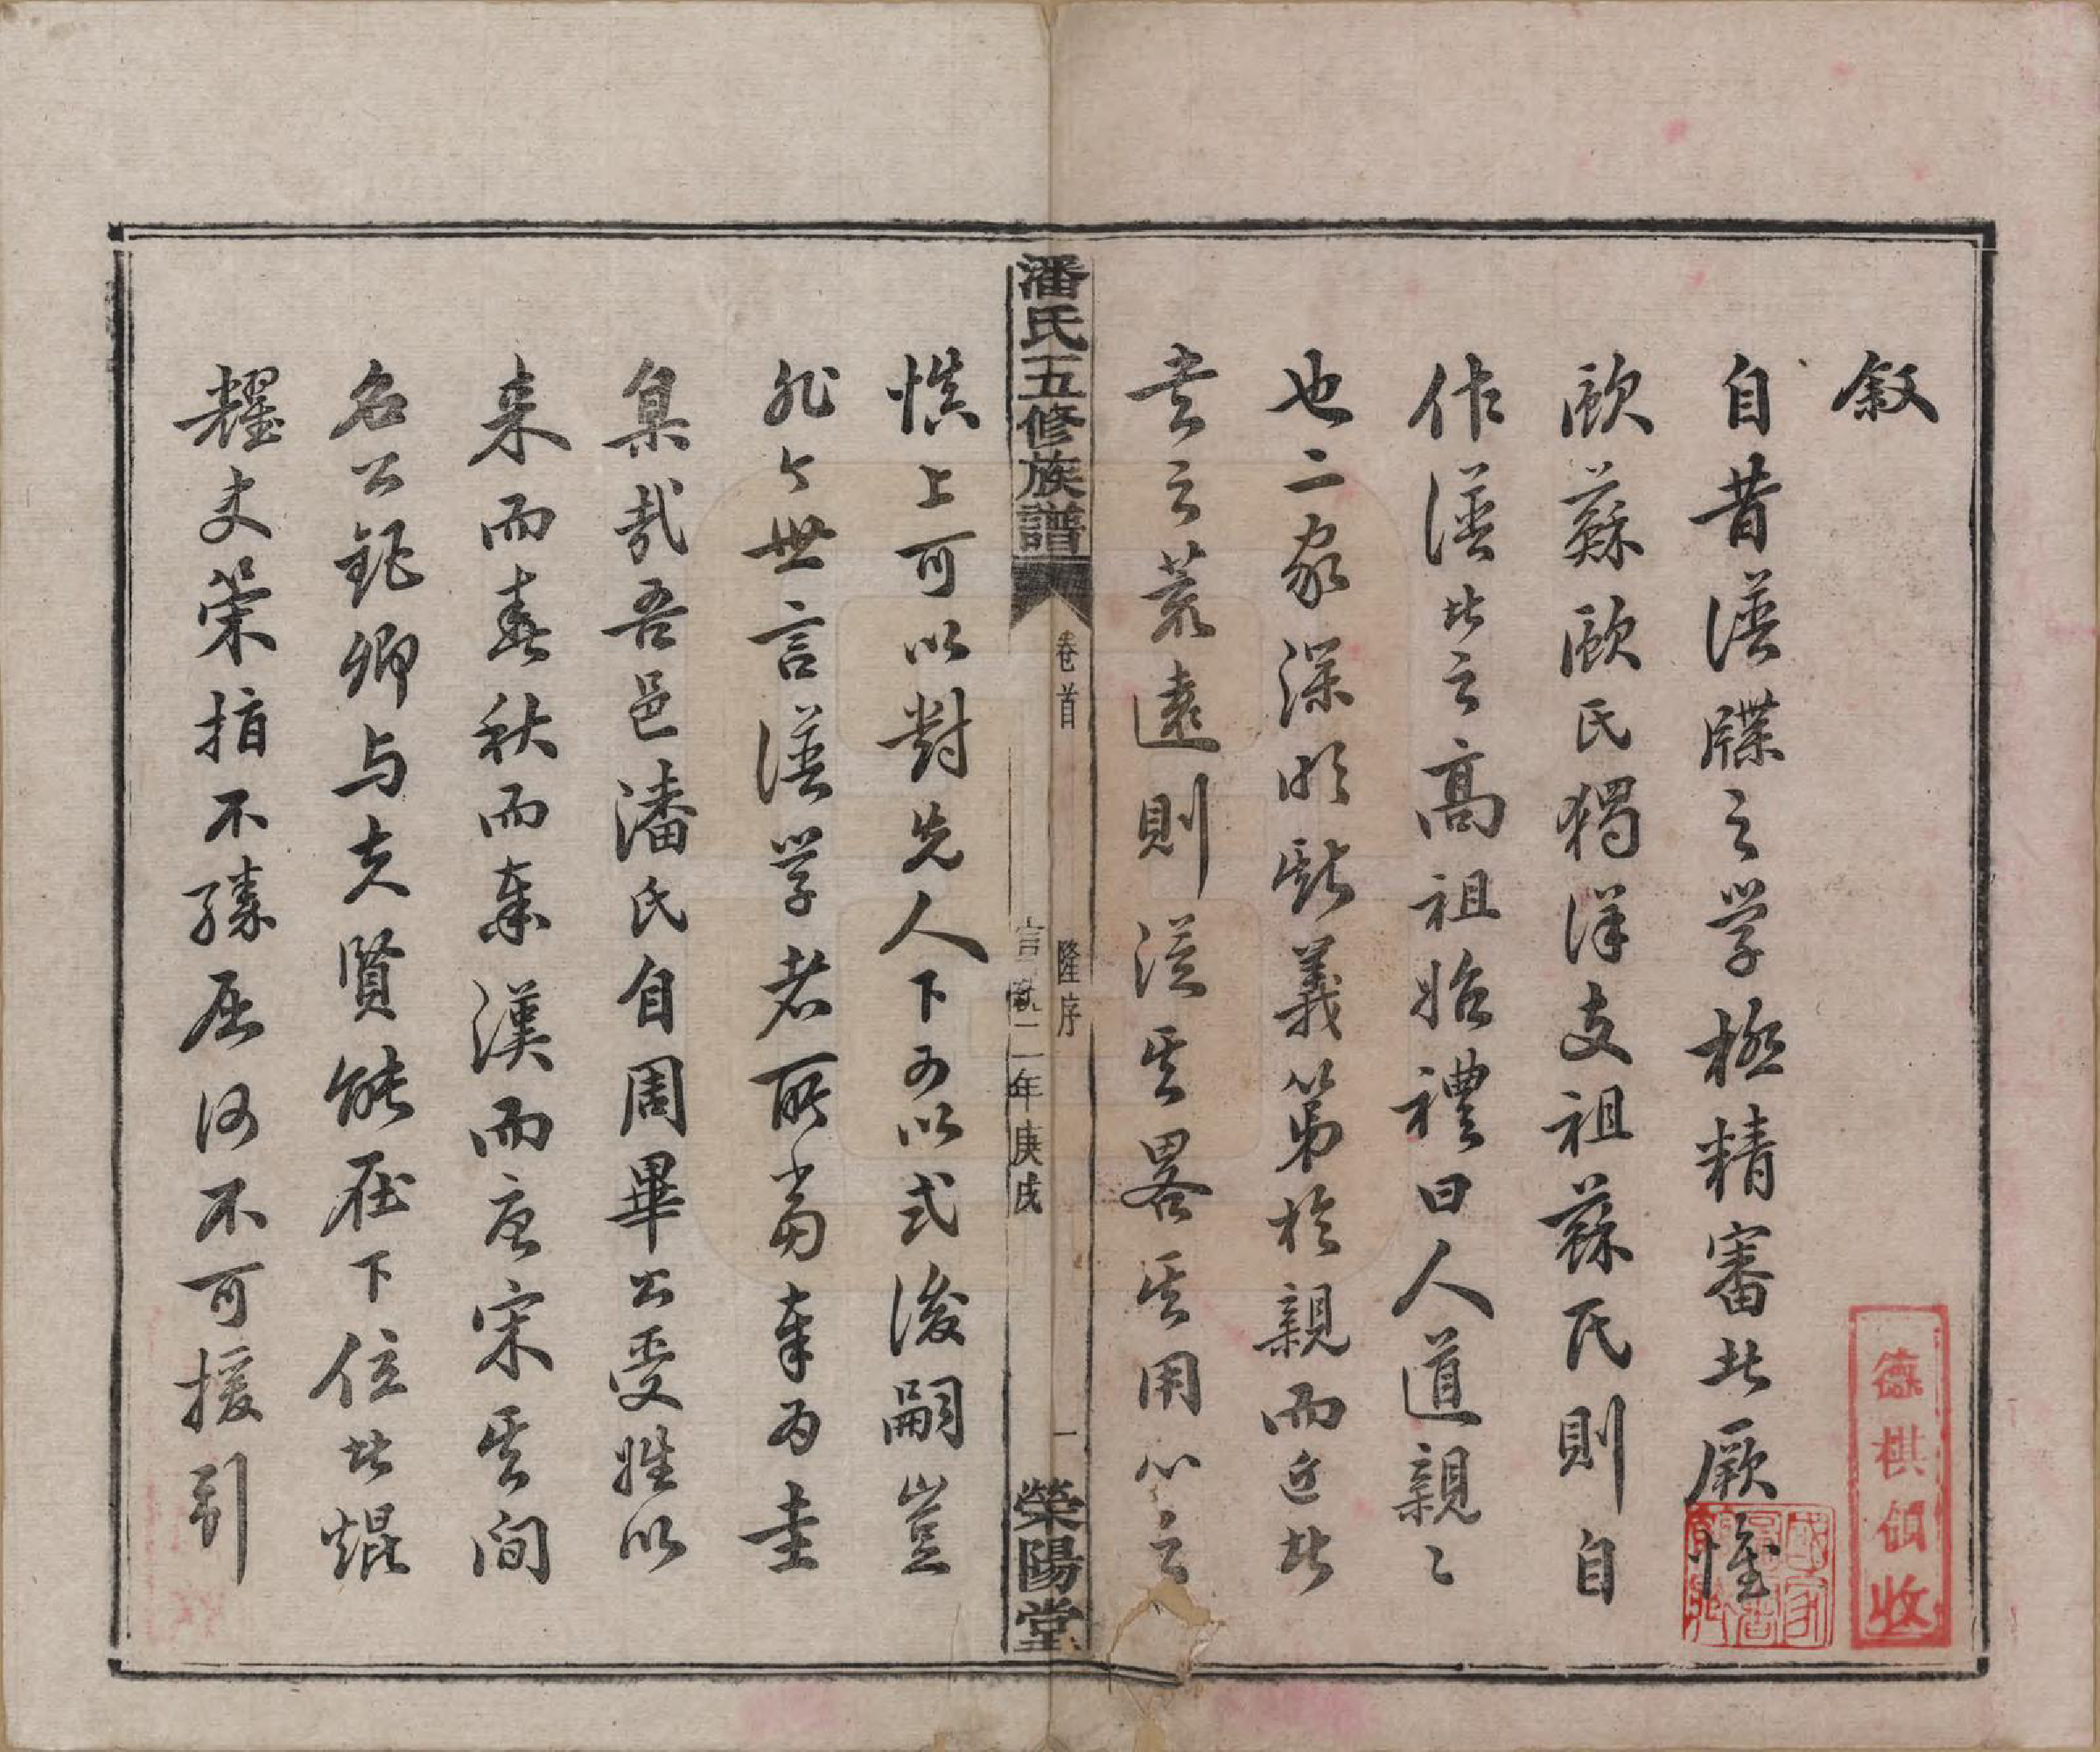 叙
自昔譜牒之学極精審者厥惟
歐蘇歐氏獨詳支祖蘇氏則自
作譜者之高祖始禮曰人道親〻
也二家深明斯義第於親而近者
言之若遠則從其畧其用心之
慎上可以對先人下可以式後嗣豈
非今世言譜学者所當奉為圭
臬哉吾邑潘氏自周畢公受姓以
来而春秋而秦漢而唐宋其间
名公鉅卿与夫賢能在下位者焜
耀史策指不勝屈何不可援引
潘氏五修族譜
卷首
隆序
宣統二年庚戌
一
榮陽堂
德棋領收